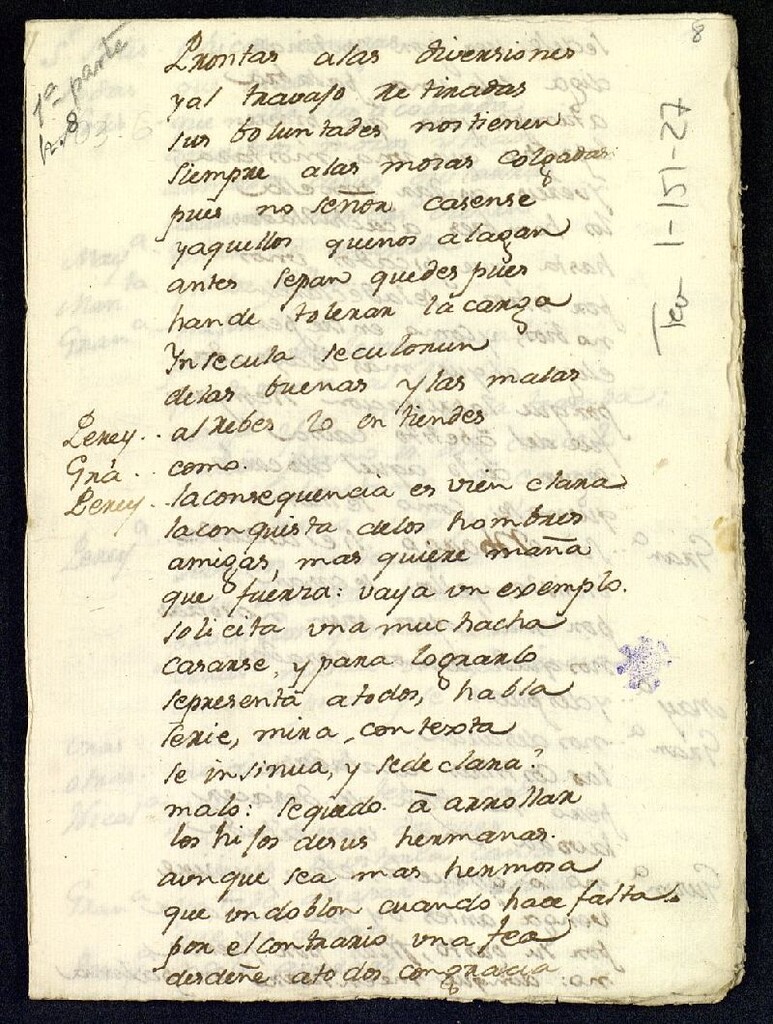 8
1ª parte
n. 8
Teu 1-151-27
Prontas alas diversiones
yal travajo Retiradas
sus boluntades nostienen
siempre alas mosas colgadas
pues no señor casense
yaquellos quenos alagan
antes sepan quedespues
hande toleran la carga
Insecula seculorun
delas buenas y las malas
Perey.. alrebes lo entiendes
Gra. .. como.
Perey. laconsequencia es vien clara
laconquista delos hombres
amigas, mas quiere maña
que fuerza: vaya un exemplo.
solicita una muchacha
casarse, y para lograrlo
sepresenta atodos, habla
serie, mira, contexta
se insinua, y sedeclara?
malo: sequedo ā arrollar
los hijos desus hermanas.
aunque sea mas hermosa
que undoblon cuando hace falta
por elcontrario una fea
desdeñe atodos congracia